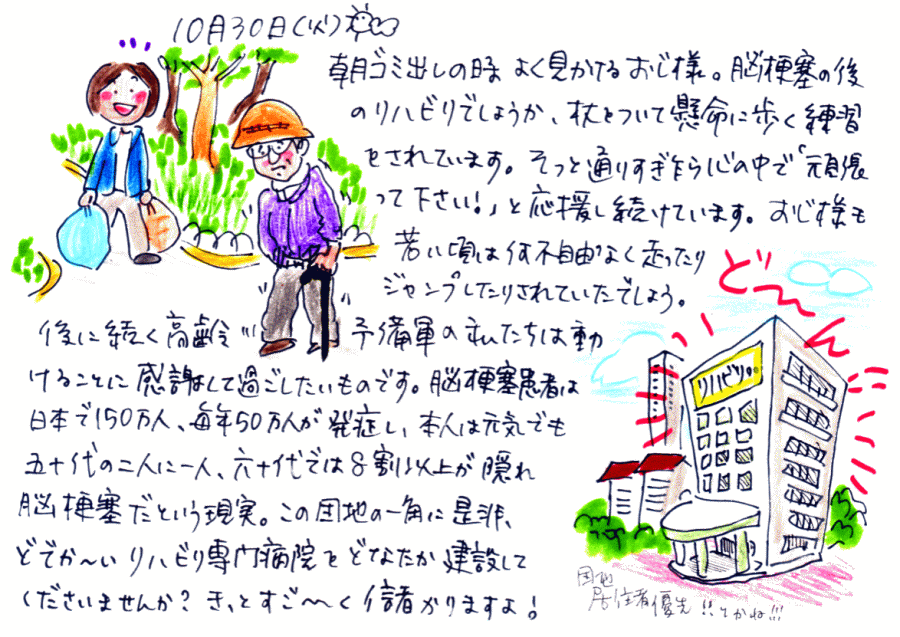 10月30日(火)
朝ゴミ出しの時よく見かけるおじ様。脳梗塞の後
のリハビリでしょうか、杖をついて懸命に歩く練習
をされています。そっと通りすぎ乍ら心の中で「頑張
って下さい!」と応援し続けています。おじ様も
若い頃は何不自由なく走ったり
ジャンプしたりされていたでしょう。
後に続く高齢予備軍の私たちは動
けることに感謝して過ごしたいものです。脳梗塞患者は
日本で150万人、毎年50万人が発症し、本人は元気でも
五十代の二人に一人、六十代では8割以上が隠れ
脳梗塞だという現実。この団地の一角に是非、
どでか〜いリハビリ専門病院をどなたか建設して
くださいませんか?きっとすご〜く儲かりますよ!
ど〜ん
リハビリ
団地
居住者優先!!とかね!!!